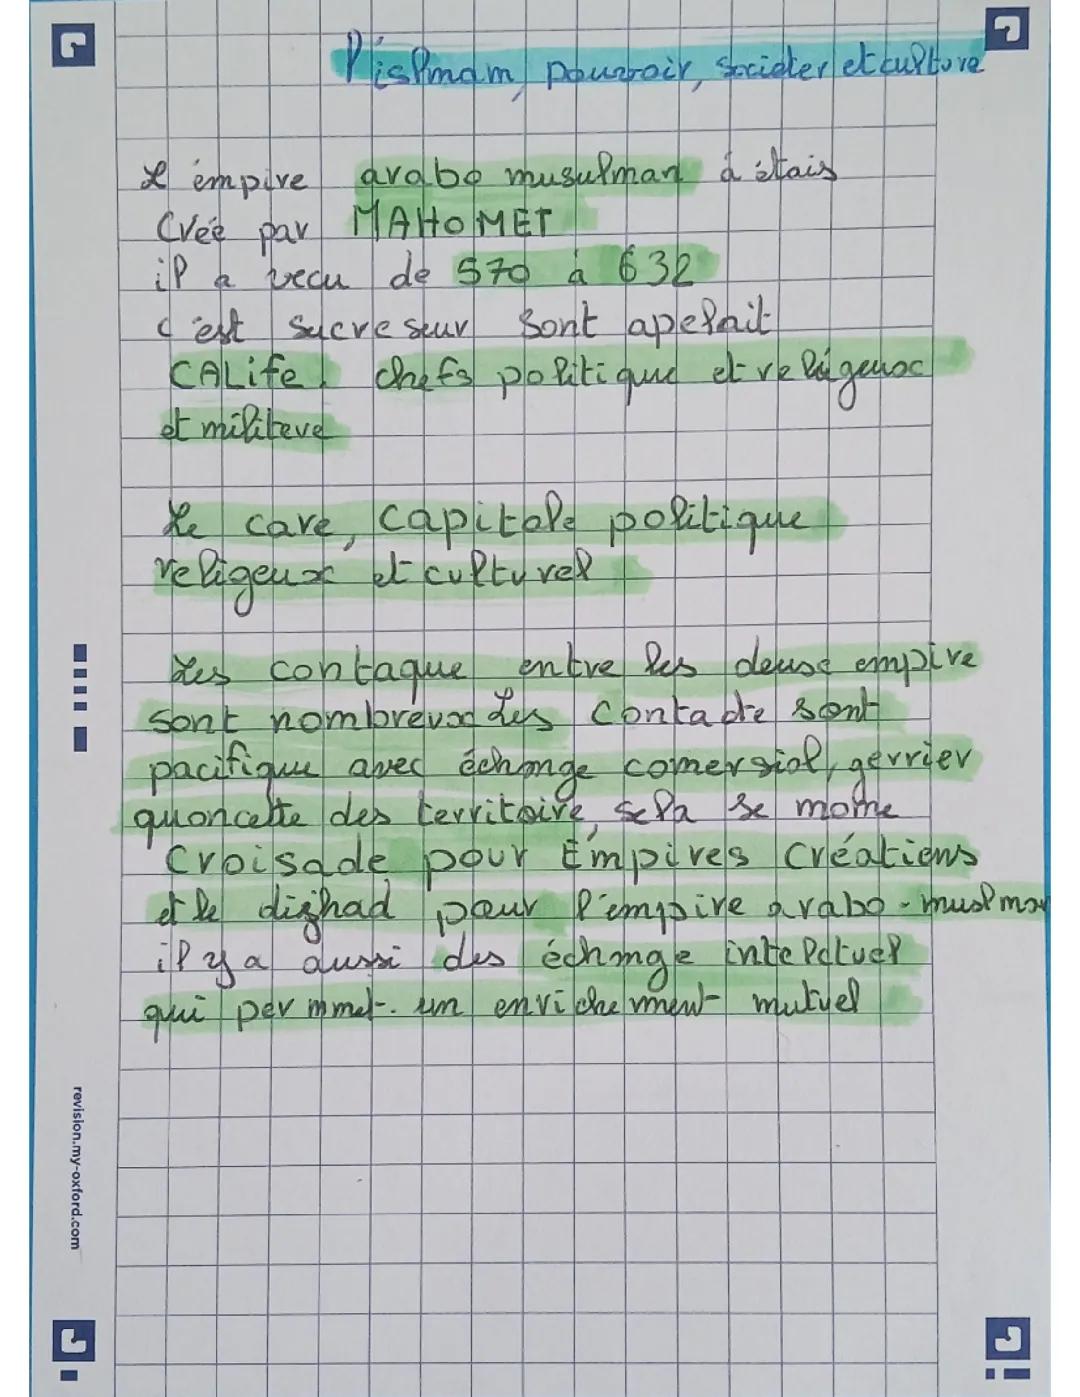 l'islmam, pouvoir, societer et culture
L'émpire arabo musulman à étais
Créé par MAHOMET
il a vecu de 570 à 632
c'est sucreseur sont apelait
CALife, chefs politique et religeuox
et militere
Le care, capitale politique
religeux et culturel
Les contaque entre les deuse empire
sont nombreuox Les Contacte sont
pacifique avec échange comersial, gerrier
quoncette des territoire, sela se mome
Croisade pour Émpires Créatiens
et le dizhad pour l'empire arabo-muslman
il y a aussi des échange intelctuel
qui permmet un enrichement mutuel
revision.my-oxford.com